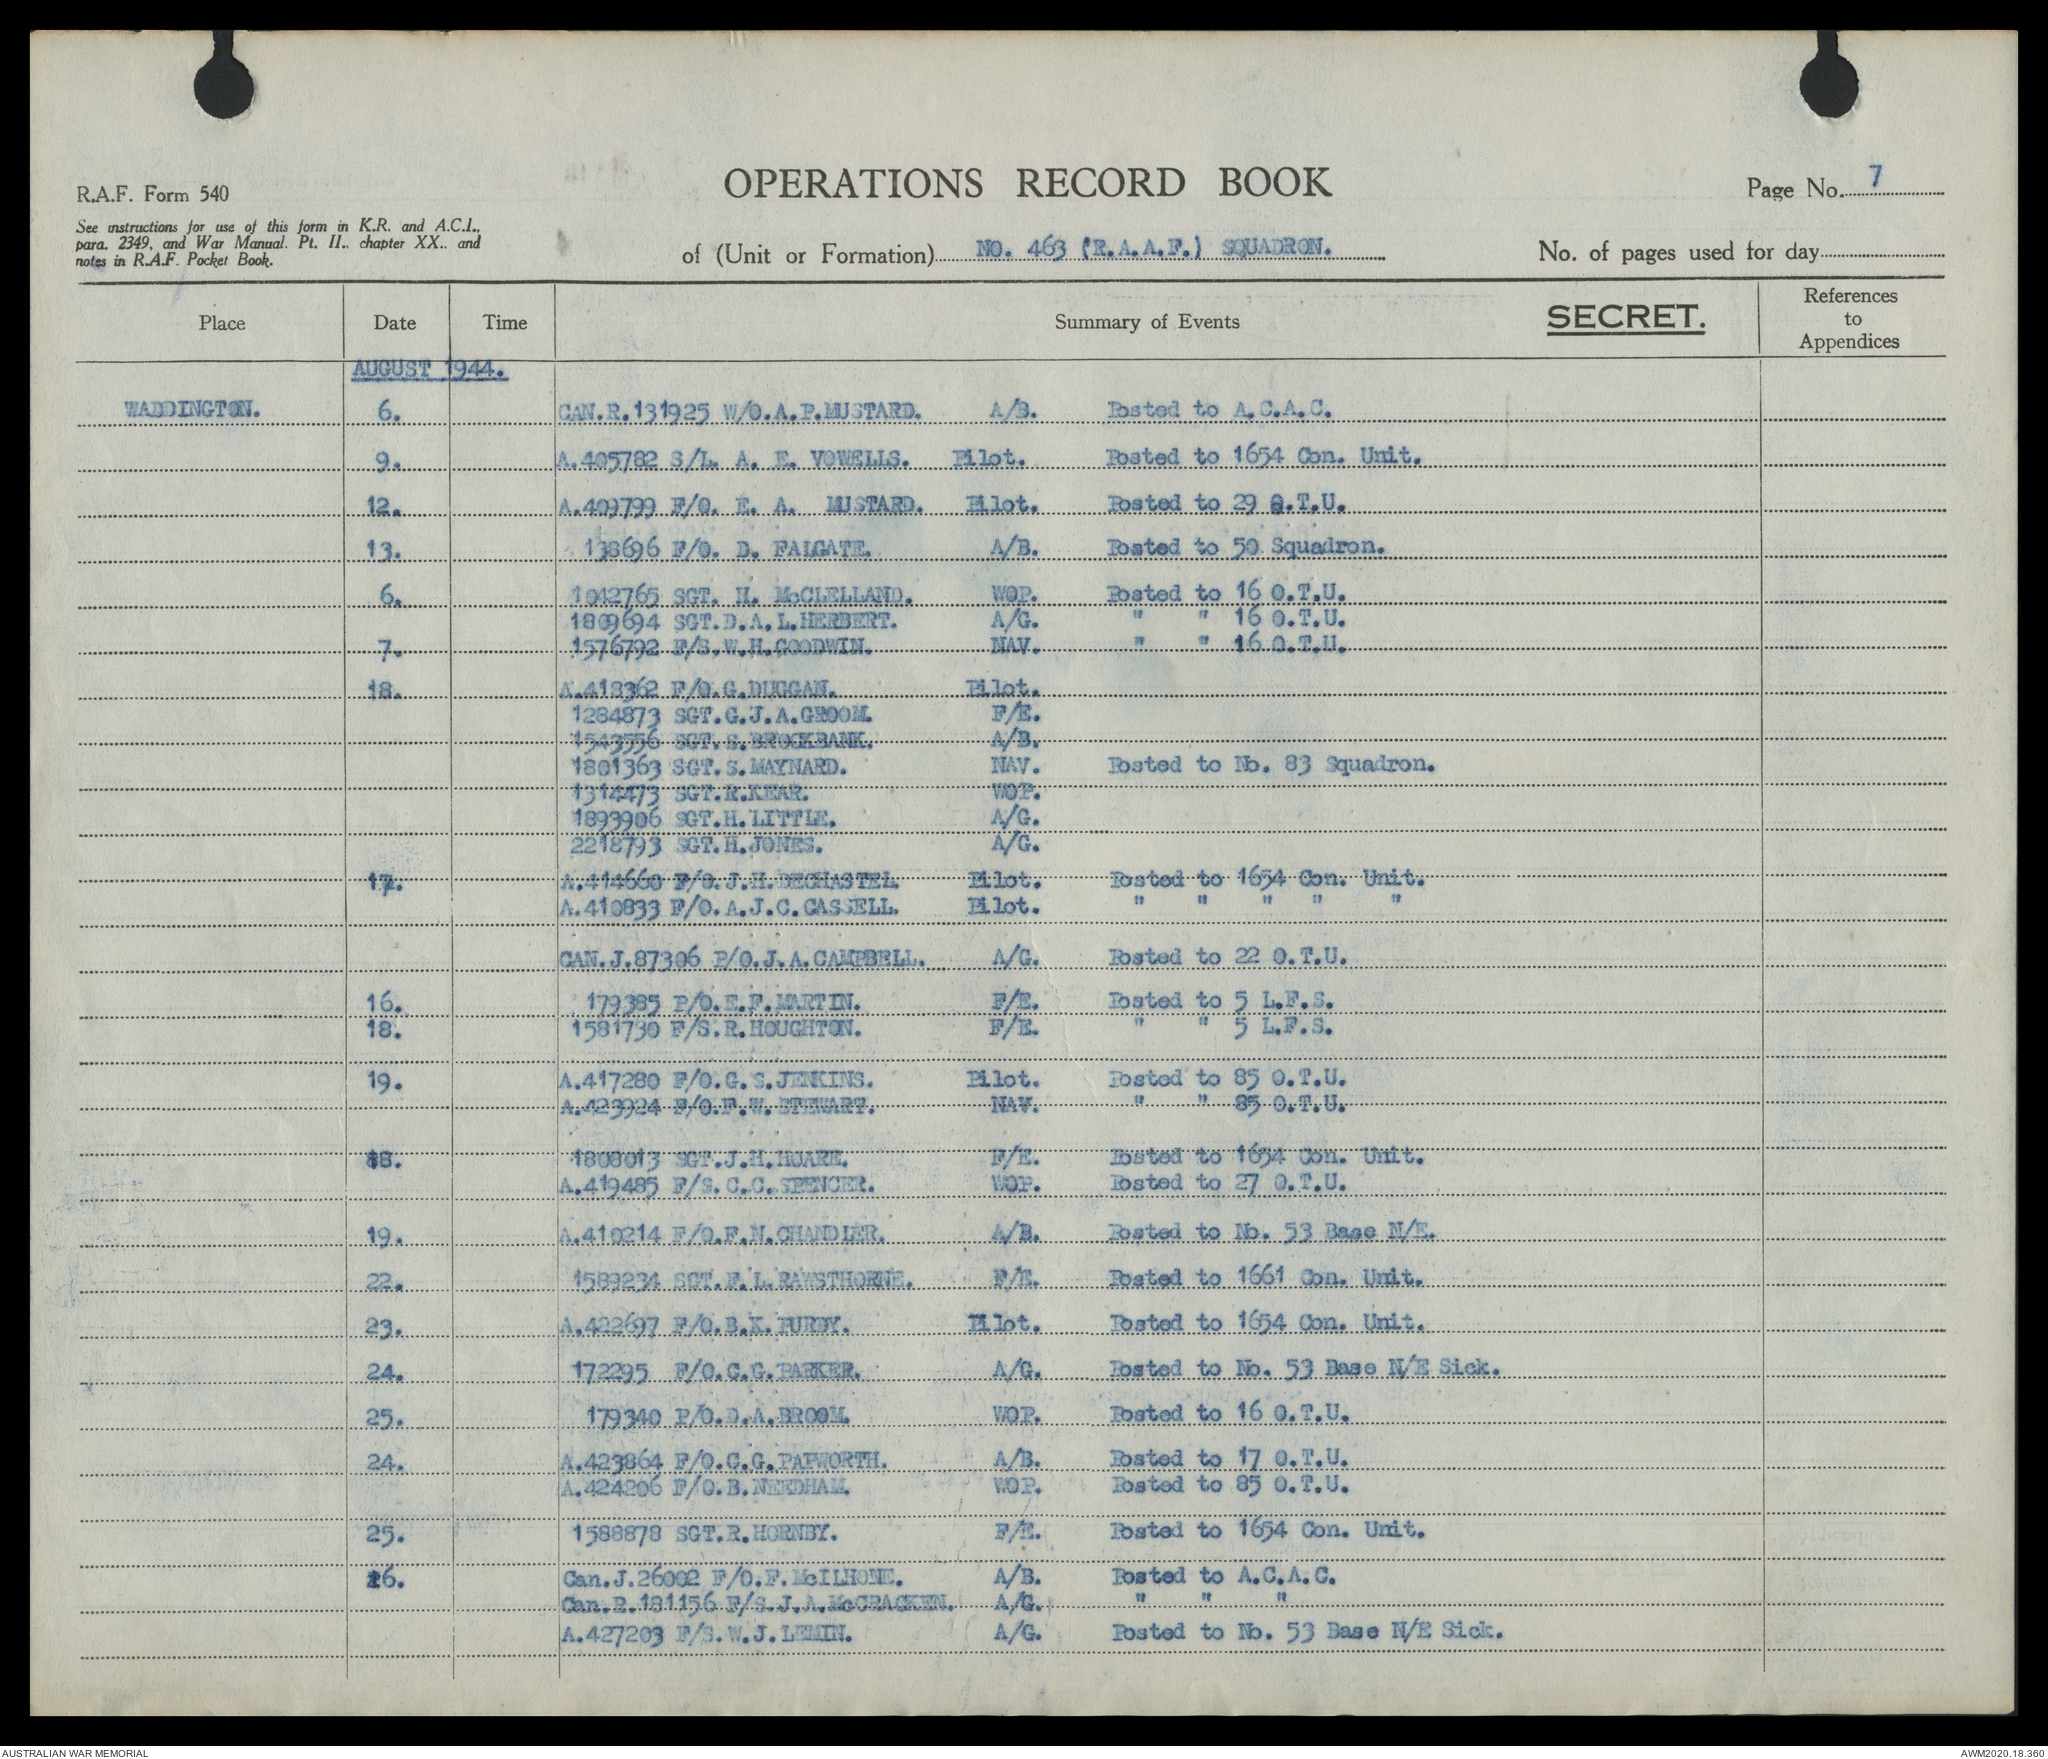 OPERATIONS RECORD BOOK
Page No. 7
R.A.F. Form 540
See instructions for use of this form in K.R. and A.C.I.,
para. 2349, and War Manual. Pt. II., chapter XX., and
notes in R.A.F. Pocket Book.
of (Unit or Formation) NO. 463 (R.A.A.F.) SQUADRON.
No. of pages used for day
Place Date Time Summary of Events SECRET. References to Appendices
AUGUST 1944.
WADDINGTON. 6. CAN.R.131925 W/O.A.P.MUSTARD. A/B. Posted to A.C.A.C.
9. A.405782 S/L. A. E. VOWELLS. Pilot. Posted to 1654 Con. Unit.
12. A.409799 F/O. E. A. MUSTARD. Pilot. Posted to 29 O.T.U.
13. 138696 F/O. D. FALGATE. A/B. Posted to 50 Squadron.
6. 1042765 SGT. H. McCLELLAND. WOP. Posted to 16 O.T.U.
1809694 SGT.D.A.L.HERBERT. A/G. " " 16 O.T.U.
7. 1576792 F/S.W.H.GOODWIN. NAV. " " 16 O.T.U.
18. A.418362 F/O.G.DUGGAN. Pilot.
1284873 SGT.G.J.A.GROOM. F/E.
1543556 SGT.S.BROCKBANK. A/B.
1801363 SGT.S.MAYNARD. NAV. Posted to No. 83 Squadron.
1314473 SGT.R.KEAR. WOP.
1893906 SGT.H.LITTLE. A/G.
2218793 SGT.H.JONES. A/G.
17. A.414660 F/O.J.H.DECHASTEL Pilot. Posted to 1654 Con. Unit.
A.410833 F/O.A.J.C.CASSELL. Pilot. " " " " "
CAN.J.87306 P/O.J.A.CAMPBELL. A/G. Posted to 22 O.T.U.
16. 179385 P/O.E.F.MARTIN. F/E. Posted to 5 L.F.S.
18. 1581730 F/S.R.HOUGHTON. F/E. " " 5 L.F.S.
19. A.417280 F/O.G.S.JENKINS. Pilot. Posted to 85 O.T.U.
A.423924 F/O.F.W.STEWART. NAV. " " 85 O.T.U.
18. 1808013 SGT.J.H.HOARE. F/E. Posted to 1654 Con. Unit.
A.419485 F/S.C.C.SPENCER. WOP. Posted to 27 O.T.U.
19. A.410214 F/O.F.N.CHANDLER. A/B. Posted to No. 53 Base N/E.
22. 1589234 SGT.F.L.RAWSTHORNE. F/E. Posted to 1661 Con. Unit.
23. A.422697 F/O.B.K.PURDY. Pilot. Posted to 1654 Con. Unit.
24. 172295 F/O.C.G.PARKER. A/G. Posted to No. 53 Base N/E Sick.
25. 179340 P/O.D.A.BROOM. WOP. Posted to 16 O.T.U.
24. A.423864 F/O.C.G.PAPWORTH. A/B. Posted to 17 O.T.U.
A.424206 F/O.B.NEEDHAM. WOP. Posted to 85 O.T.U.
25. 1588878 SGT.R.HORNBY. F/E. Posted to 1654 Con. Unit.
26. Can.J.26002 F/O.F.McILHONE. A/B. Posted to A.C.A.C.
Can.R.181156 F/S.J.A.McCRACKEN. A/G. " " "
A.427203 F/S.W.J.LEMIN. A/G. Posted to No. 53 Base N/E Sick.
AUSTRALIAN WAR MEMORIAL
AWM2020.18.360